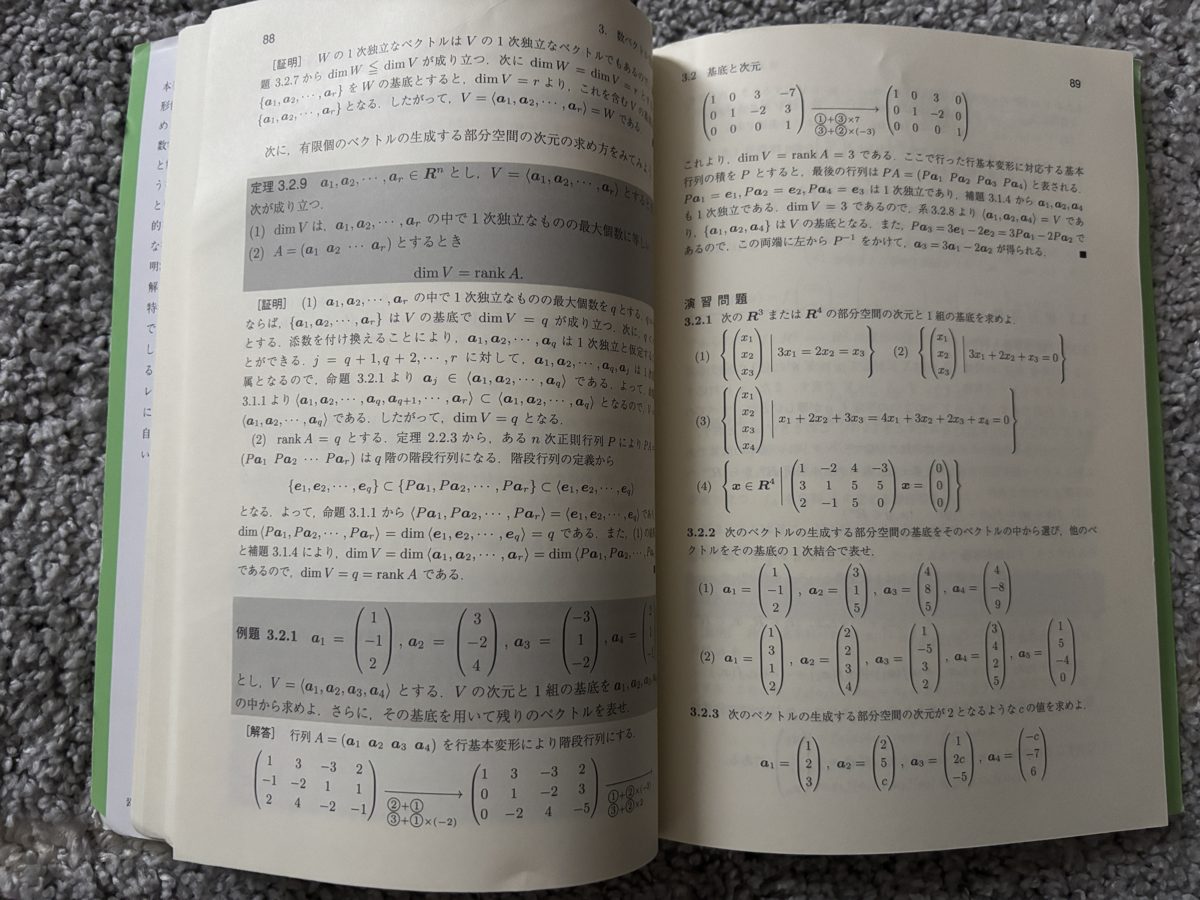 88
3. 数ベクト
[証明] W の1次独立なベクトルは V の1次独立なベクトルでもあるので
題 3.2.7 から dim W ≦ dim V が成り立つ. 次に dim W = dim V = r と
{a₁, a₂, ···, aᵣ} を W の基底とすると, dim V = r より, これを含む V の
{a₁, a₂, ···, aᵣ} となる. したがって, V = ⟨a₁, a₂, ···, aᵣ⟩ = W である.
次に, 有限個のベクトルの生成する部分空間の次元の求め方をみてみよ
定理 3.2.9 a₁, a₂, ···, aᵣ ∈ Rⁿ とし, V = ⟨a₁, a₂, ···, aᵣ⟩ とすると
次が成り立つ.
(1) dim V は, a₁, a₂, ···, aᵣ の中で1次独立なものの最大個数に等し
(2) A = (a₁ a₂ ··· aᵣ) とするとき
dim V = rank A.
[証明] (1) a₁, a₂, ···, aᵣ の中で1次独立なものの最大個数を q とする.
ならば, {a₁, a₂, ···, aᵣ} は V の基底で dim V = q が成り立つ. 次に, q <
とする. 添数を付け換えることにより, a₁, a₂, ···, a_q は1次独立と仮定す
とができる. j = q + 1, q + 2, ···, r に対して, a₁, a₂, ···, a_q, aⱼ は1
属となるので, 命題 3.2.1 より aⱼ ∈ ⟨a₁, a₂, ···, a_q⟩ である. よって,
3.1.1 より ⟨a₁, a₂, ···, a_q, a_{q+1}, ···, aᵣ⟩ ⊂ ⟨a₁, a₂, ···, a_q⟩ となるので,
⟨a₁, a₂, ···, a_q⟩ である. したがって, dim V = q となる.
(2) rank A = q とする. 定理 2.2.3 から, ある n 次正則行列 P により PA =
(Pa₁ Pa₂ ··· Paᵣ) は q 階の階段行列になる. 階段行列の定義から
{e₁, e₂, ···, e_q} ⊂ {Pa₁, Pa₂, ···, Paᵣ} ⊂ ⟨e₁, e₂, ···, e_q⟩
となる. よって, 命題 3.1.1 から ⟨Pa₁, Pa₂, ···, Paᵣ⟩ = ⟨e₁, e₂, ···, e_q⟩ であ
dim ⟨Pa₁, Pa₂, ···, Paᵣ⟩ = dim ⟨e₁, e₂, ···, e_q⟩ = q である. また, (1) の
と補題 3.1.4 により, dim V = dim ⟨a₁, a₂, ···, aᵣ⟩ = dim ⟨Pa₁, Pa₂, ···, Pa
であるので, dim V = q = rank A である.
例題 3.2.1 a₁ = (1 −1 2), a₂ = (3 −2 4), a₃ = (−3 1 −2), a₄ =
とし, V = ⟨a₁, a₂, a₃, a₄⟩ とする. V の次元と1組の基底を a₁, a₂, a₃
の中から求めよ. さらに, その基底を用いて残りのベクトルを表せ.
[解答] 行列 A = (a₁ a₂ a₃ a₄) を行基本変形により階段行列にする.
1 3 −3 2   1 3 −3 2
−1 −2 1 1   0 1 −2 3
2 4 −2 −1   0 −2 4 −5
②+①   ①+②×(−3)
③+①×(−2)   ③+②×2
3.2 基底と次元
89
1 0 3 −7   1 0 3 0
0 1 −2 3   0 1 −2 0
0 0 0 1   0 0 0 1
①+③×7
③+②×(−3)
これより, dim V = rank A = 3 である. ここで行った行基本変形に対応する基本
行列の積を P とすると, 最後の行列は PA = (Pa₁ Pa₂ Pa₃ Pa₄) と表される.
Pa₁ = e₁, Pa₂ = e₂, Pa₄ = e₃ は1次独立であり, 補題 3.1.4 から a₁, a₂, a₄
も1次独立である. dim V = 3 であるので, 系 3.2.8 より ⟨a₁, a₂, a₄⟩ = V であ
り, {a₁, a₂, a₄} は V の基底となる. また, Pa₃ = 3e₁ − 2e₂ = 3Pa₁ − 2Pa₂ で
あるので, この両端に左から P⁻¹ をかけて, a₃ = 3a₁ − 2a₂ が得られる. ■
演習問題
3.2.1 次の R³ または R⁴ の部分空間の次元と1組の基底を求めよ.
(1) {(x₁ x₂ x₃) | 3x₁ = 2x₂ = x₃} (2) {(x₁ x₂ x₃) | 3x₁ + 2x₂ + x₃ = 0}
(3) {(x₁ x₂ x₃ x₄) | x₁ + 2x₂ + 3x₃ = 4x₁ + 3x₂ + 2x₃ + x₄ = 0}
(4) {x ∈ R⁴ | (1 −2 4 −3 / 3 1 5 5 / 2 −1 5 0) x = (0 0 0)}
3.2.2 次のベクトルの生成する部分空間の基底をそのベクトルの中から選び, 他のベ
クトルをその基底の1次結合で表せ.
(1) a₁ = (1 −1 2), a₂ = (3 1 5), a₃ = (4 8 5), a₄ = (4 −8 9)
(2) a₁ = (1 3 1 2), a₂ = (2 2 3 4), a₃ = (1 −5 3 2), a₄ = (3 4 2 5), a₅ = (1 5 −4 0)
3.2.3 次のベクトルの生成する部分空間の次元が2となるような c の値を求めよ.
a₁ = (1 2 3), a₂ = (2 5 c), a₃ = (1 2c −5), a₄ = (−c −7 6)